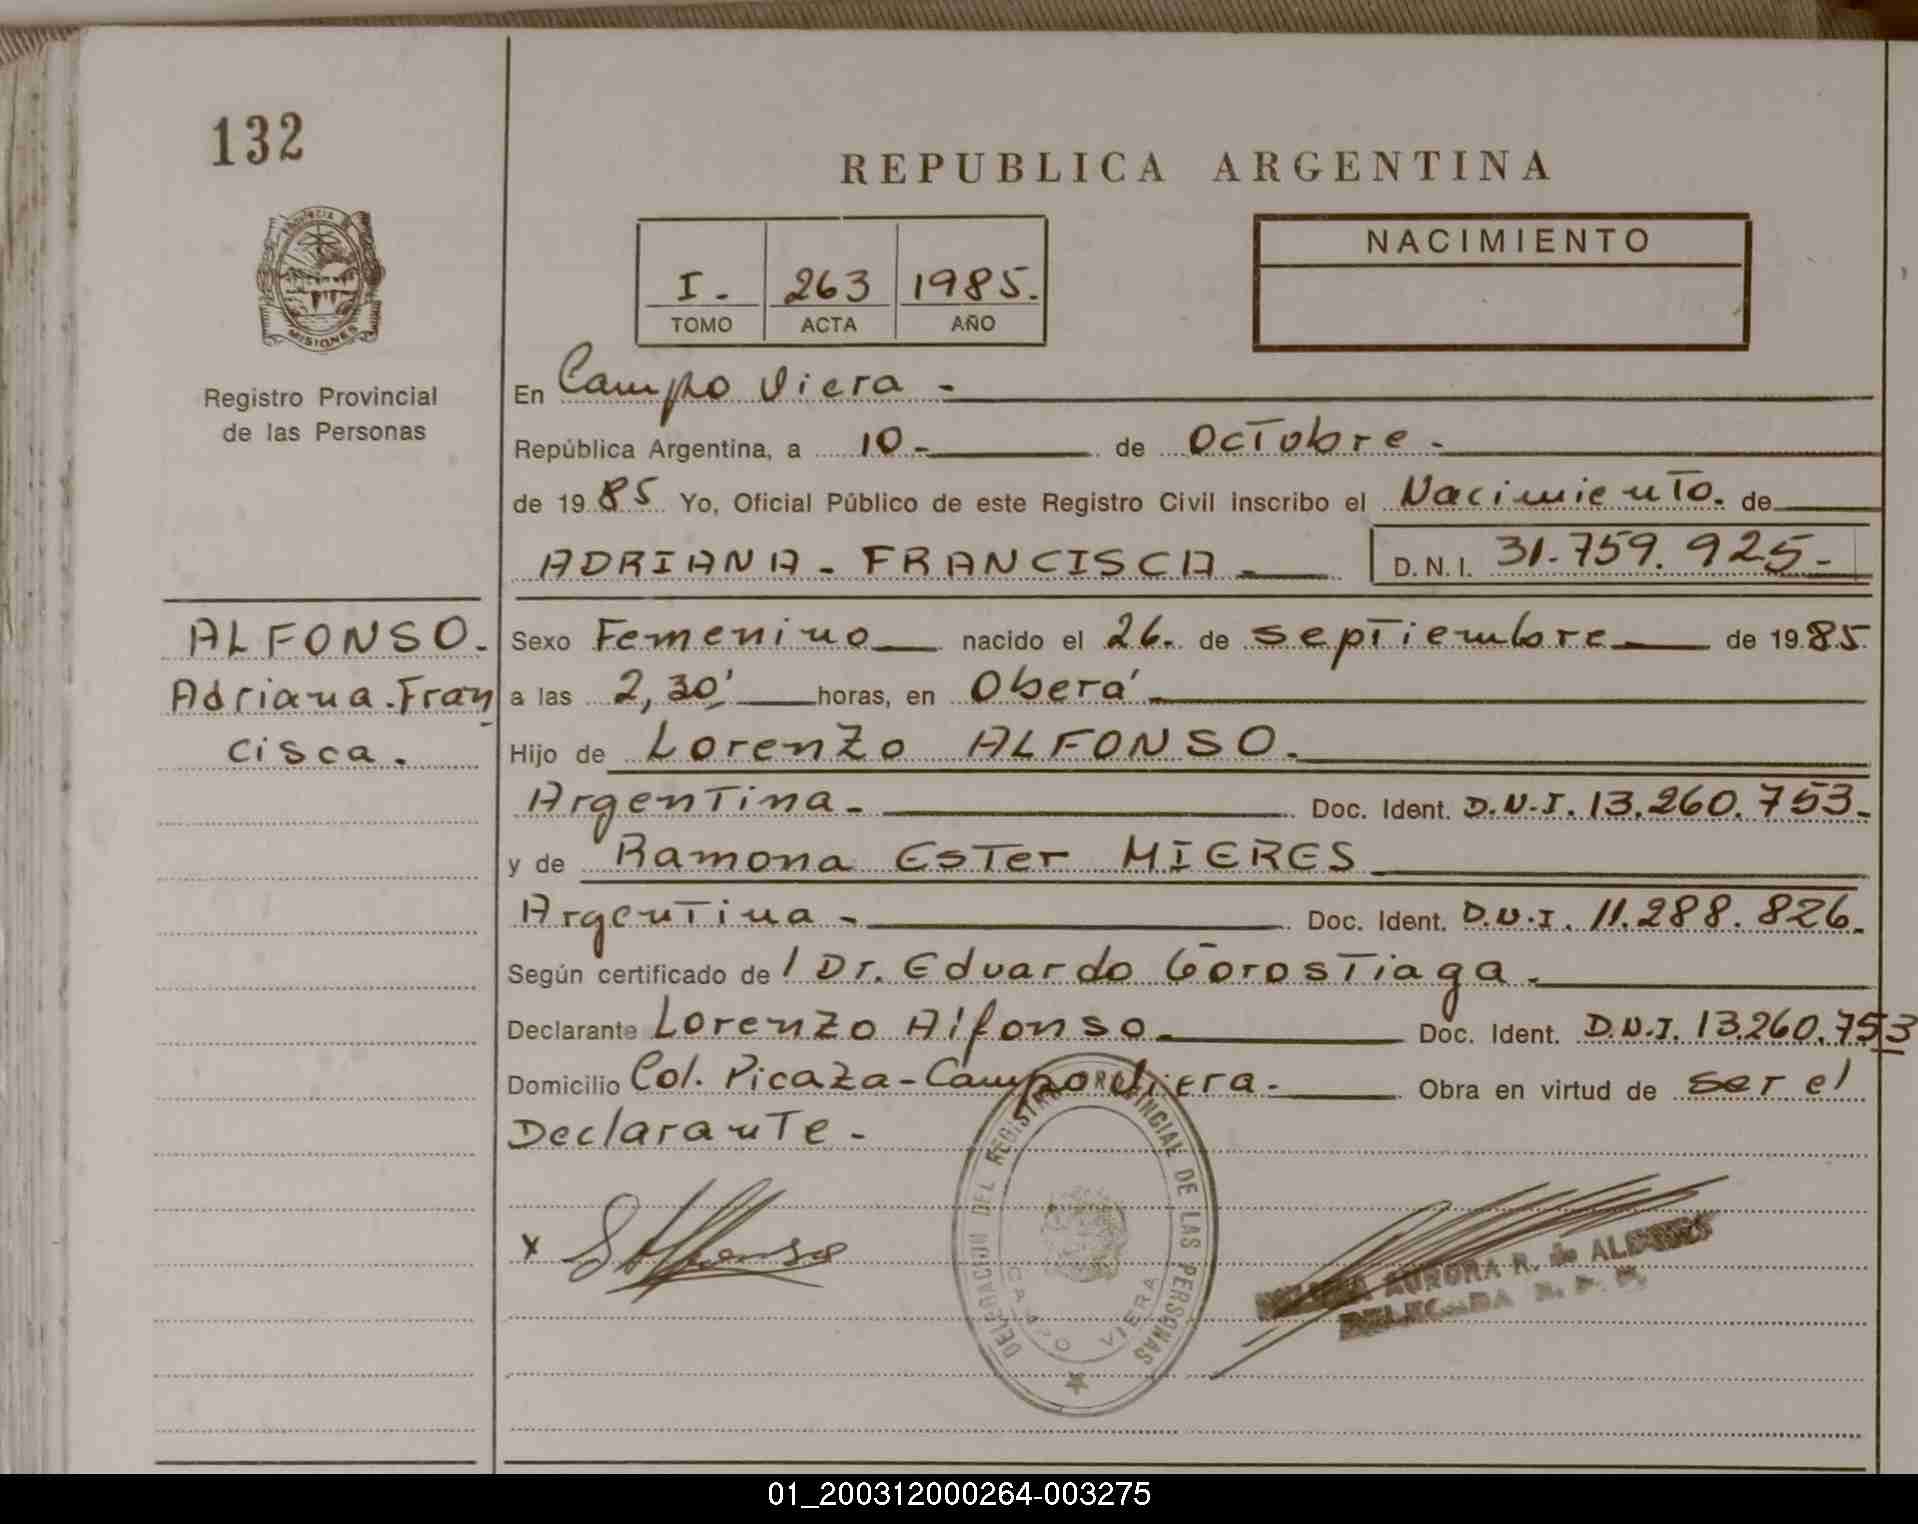 132
REPUBLICA ARGENTINA
PROVINCIA DE
MISIONES
I. 263 1985.
TOMO ACTA AÑO
NACIMIENTO
Registro Provincial
de las Personas
En Campo Viera -
República Argentina, a 10.- de Octubre -
de 1985 Yo, Oficial Público de este Registro Civil inscribo el Nacimiento. de
ADRIANA - FRANCISCA - D.N.I. 31.759.925-
ALFONSO.
Adriana.Fran
cisca.
Sexo Femenino nacido el 26. de septiembre de 1985
a las 2,30' horas, en Oberá
Hijo de Lorenzo ALFONSO.
Argentina - Doc. Ident. D.N.I. 13.260.753-
y de Ramona Ester MIERES
Argentina - Doc. Ident. D.N.I. 11.288.826.
Según certificado de l Dr. Eduardo Gorostiaga.
Declarante Lorenzo Alfonso Doc. Ident. D.N.I. 13.260.753
Domicilio Col. Picaza-Campo Viera. Obra en virtud de ser el
Declarante -
x Alfonso
DELEGACION DEL REGISTRO PROVINCIAL DE LAS PERSONAS
CAMPO VIERA
AURORA R. de
DELEGADA R. P. P.
01_200312000264-003275